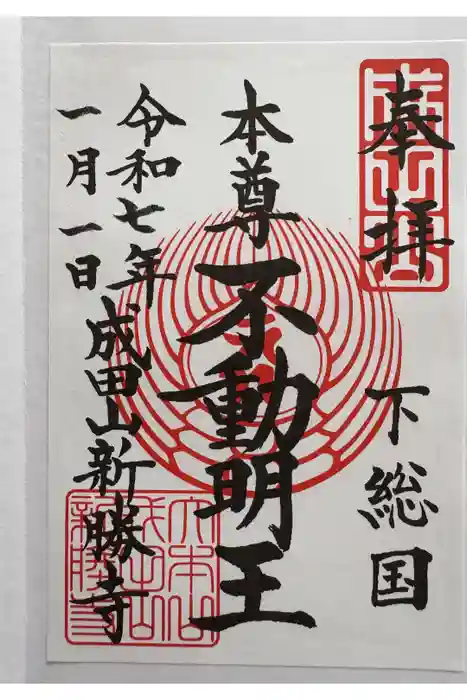 奉拝
下総国
本尊不動明王
令和七年
一月一日
成田山新勝寺